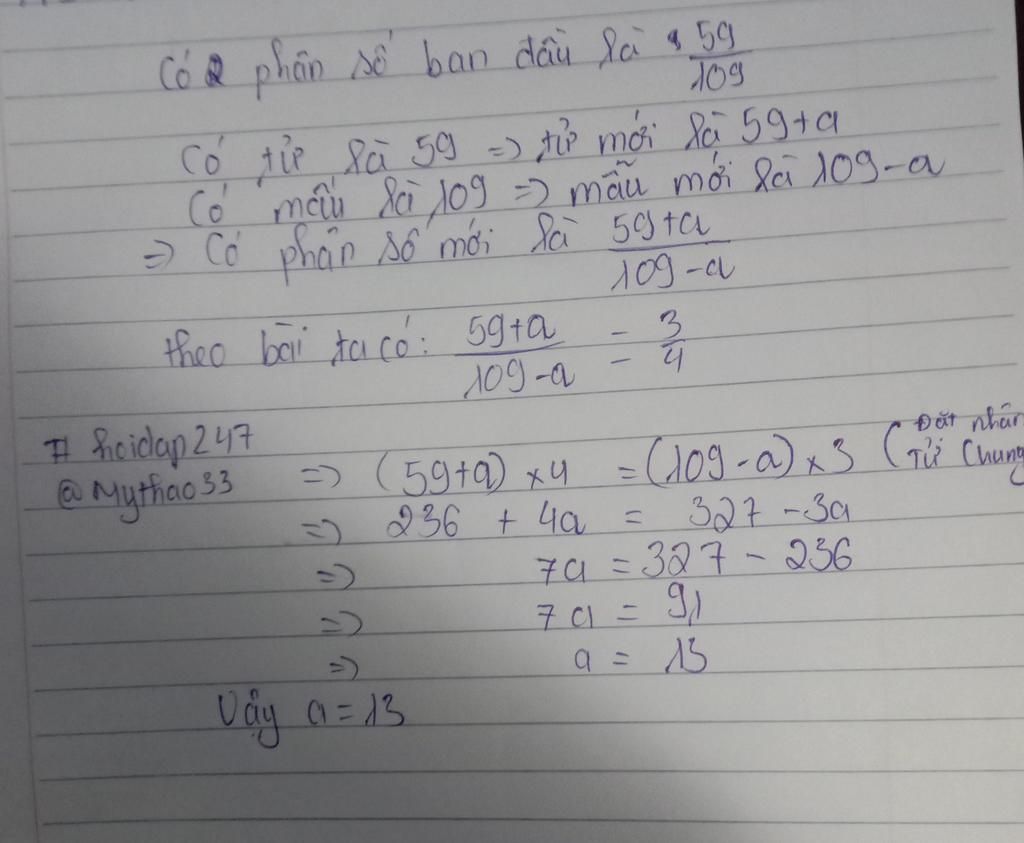 Có phân số ban đầu là 59/109
Có tử là 59 => tử mới là 59+a
Có mẫu là 109 => mẫu mới là 109-a
=> Có phân số mới là 59+a/109-a
theo bài ta có: 59+a/109-a = 3/4
# hoidap247
@Mythao33
=> (59+a) x4 = (109-a) x3 (Đặt nhân
Tử Chung
=> 236 + 4a = 327 - 3a
=> 7a = 327 - 236
=> 7a = 91
=> a = 13
Vậy a = 13